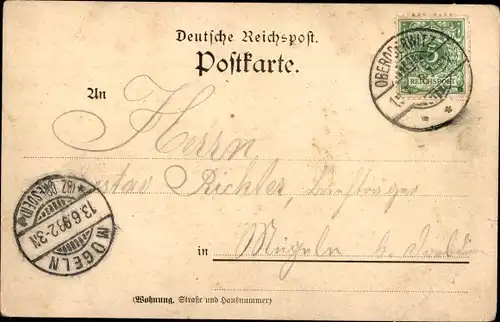 Deutsche Reichspost.
Postkarte.
OBERODERWITZ
5
REICHSPOST
An
Herrn
Gustav Richter,
13.6.98.2-3N
(BZ. DRESDEN)
MÜGELN
in Mügeln b.
(Wohnung, Straße und Hausnummer)